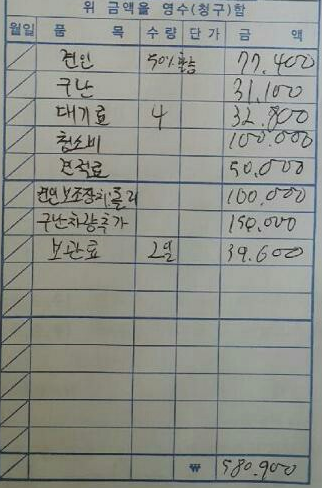 위 금액을 영수(청구)함
월일 품 목 수량 단가 금 액
견인 50% 할증 77.400
구난 31.100
대기료 4 32.800
청소비 100.000
견적료 50.000
견인보조장치:돌리 100.000
구난차량추가 150.000
보관료 2일 39.600
₩ 580.900